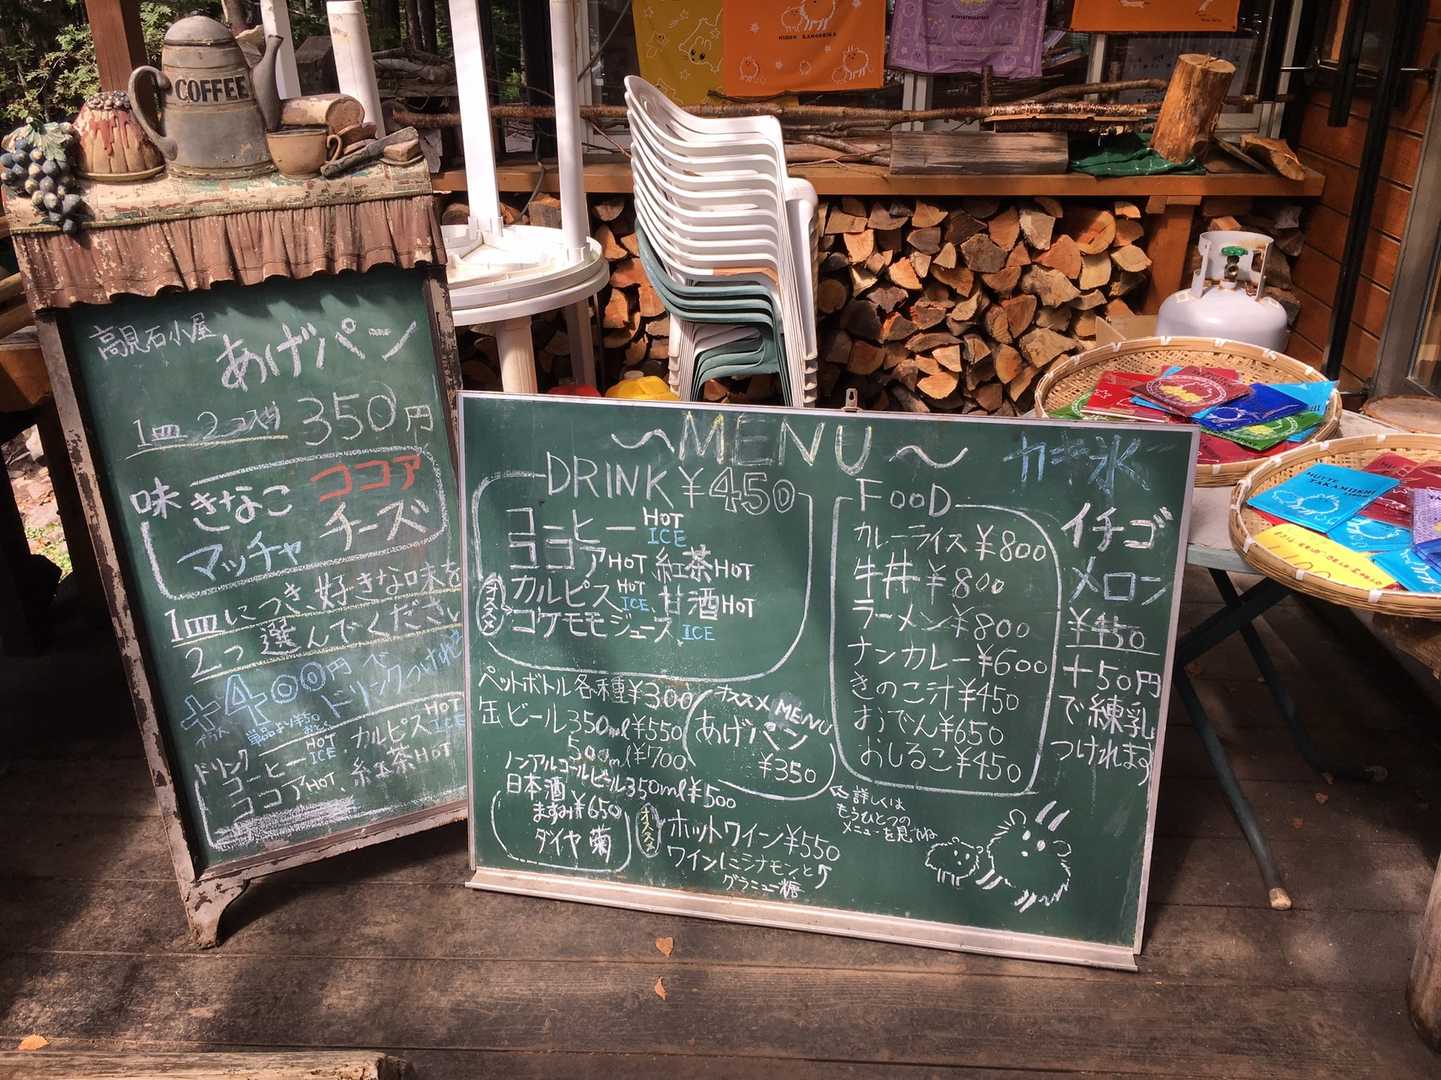 COFFEE
高見石小屋
あげパン
1皿 2コ入り 350円
味 きなこ ココア
マッチャ チーズ
1皿につき、好きな味を
2つ選んでください
+400円で
ドリンクつけれ
単品より¥50
ドリンク
コーヒー HOT ICE ・カルピス HOT ICE
ココア HOT 、紅茶 HOT
〜MENU〜
DRINK ¥450
コーヒー HOT ICE
ココア HOT 紅茶 HOT
カルピス HOT ICE、甘酒 HOT
オススメ コケモモジュース ICE
ペットボトル各種 ¥300
缶ビール 350ml ¥550
500ml ¥700
ノンアルコールビール 350ml ¥500
日本酒
ますみ ¥650
ダイヤ菊
オススメ MENU
あげパン
¥350
オススメ ホットワイン ¥550
ワインにシナモンと
グラニュー糖
FOOD
カレーライス ¥800
牛丼 ¥800
ラーメン ¥800
ナンカレー ¥600
きのこ汁 ¥450
おでん ¥650
おしるこ ¥450
←詳しくは
もうひとつの
メニューを見てね
カキ氷
イチゴ
メロン
¥450
+50円
で練乳
つけれます
HUTTE
TAKAMIISHI